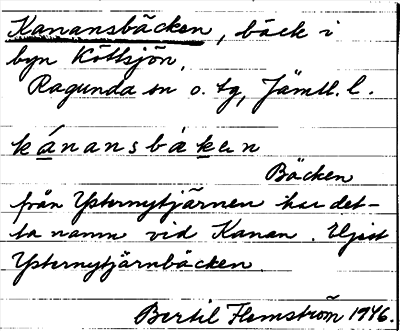 Kanansbäcken, bäck i
byn Köttsjön,
Ragunda sn o. tg, Jämtl. l.
kánansbàkɐn
Bäcken
från Ysternytjärnen har det-
ta namn vid Kanan. Eljest
Ysternytjärnbäcken
Bertil Flemström 1946.